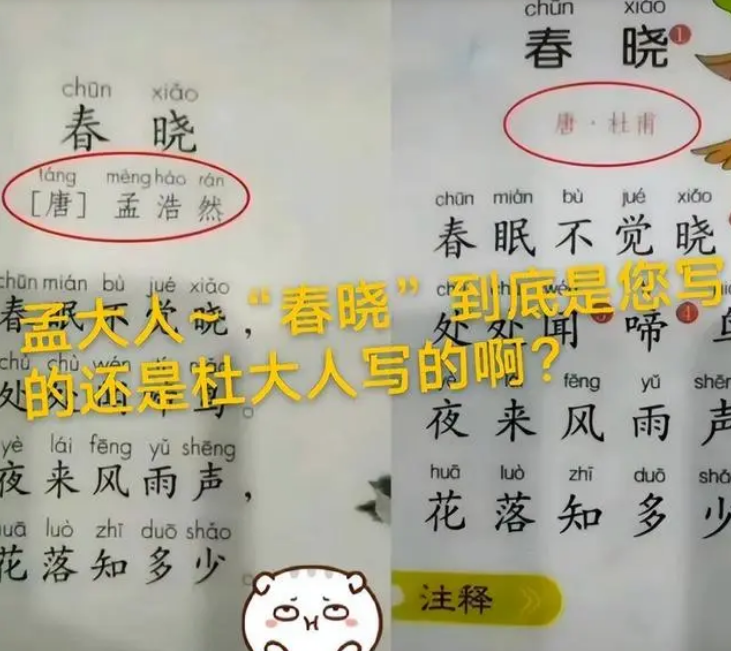 chūn xiǎo
春 晓
táng mèng hào rán
[唐] 孟 浩 然
chūn mián bù jué xiǎo
春 眠 不 觉 晓，
chù chù wén
处
yè lái fēng yǔ shēng
夜 来 风 雨 声，
huā luò zhī duō shǎo
花 落 知 多 少。
chūn xiǎo
春 晓 1
唐·杜甫
chūn mián bù jué xiǎo
春 眠 不 觉 晓
处 处 闻 啼 4 鸟
fēng yǔ shēn
夜 来 风 雨 声
huā luò zhī duō shǎ
花 落 知 多 少
注释
孟大人~“春晓”到底是您写
的还是杜大人写的啊？